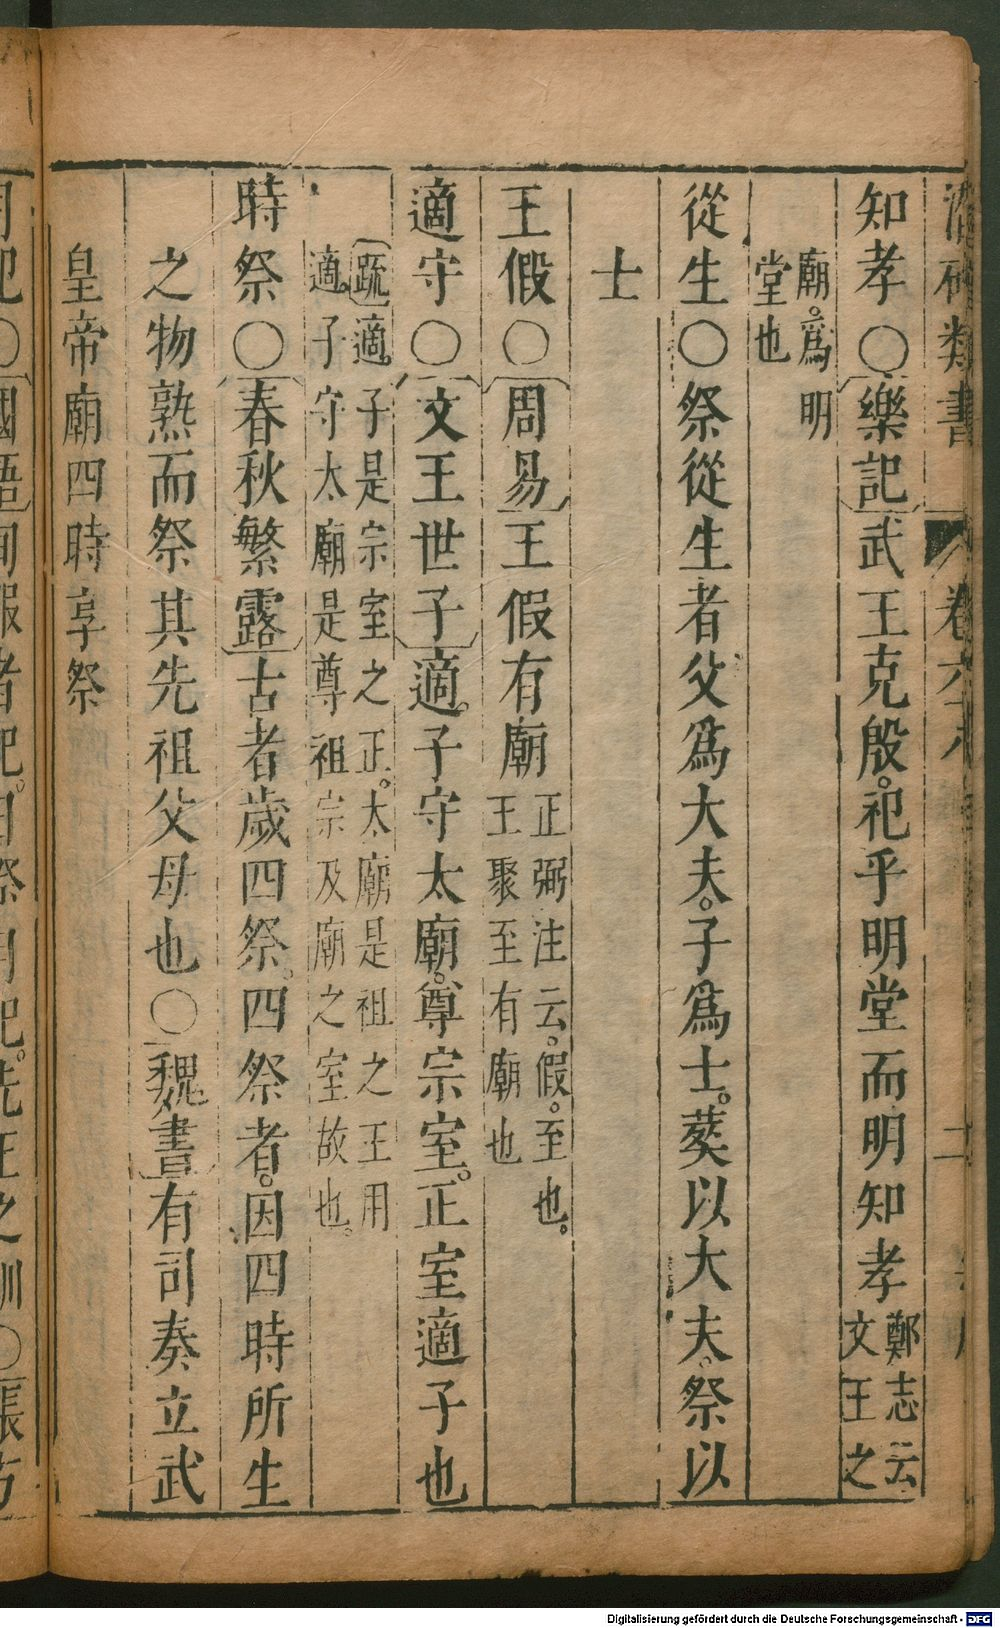 類書 卷六八
知孝○樂記武王克殷。祀乎明堂而明知孝鄭志云文王之
廟。爲明堂也
從生○祭從生者父爲大夫。子爲士。葬以大夫。祭以
士
王假○周易王假有廟正弼注云。假。至也。王聚至有廟也
適守○文王世子適。子守太廟。尊宗室。正室適子也
疏適。子是宗室之正。太廟是祖之王用
適。子守太廟是尊祖宗及廟之室故也。
時祭○春秋繁露古者歲四祭。四祭者。因四時所生
之物熟而祭其先祖父母也○魏書有司奏立武
皇帝廟四時享祭
月祀○國語甸服者祀。日祭月祀。先王之訓○張方
Digitalisierung gefördert durch die Deutsche Forschungsgemeinschaft - DFG